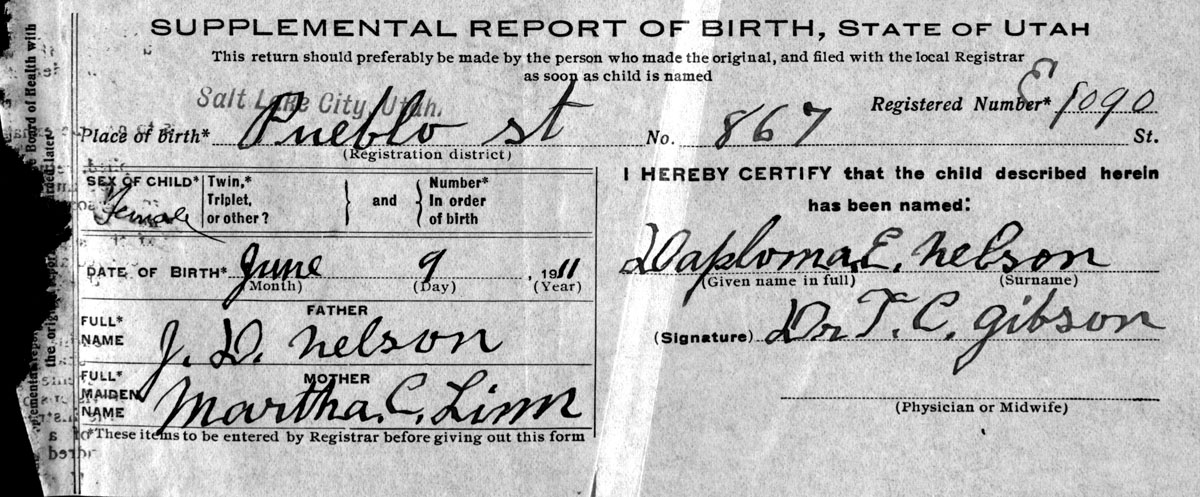 SUPPLEMENTAL REPORT OF BIRTH, STATE OF UTAH
This return should preferably be made by the person who made the original, and filed with the local Registrar
as soon as child is named
Salt Lake City, Utah.
Registered Number* E 1090
Place of birth* Pueblo st No. 867 St.
(Registration district)
SEX OF CHILD* Female
Twin,* Triplet, or other?
and
Number* In order of birth
DATE OF BIRTH* June 9, 1911
(Month) (Day) (Year)
FATHER
FULL* NAME J. D. Nelson
MOTHER
FULL* MAIDEN NAME Martha. C. Linn
*These items to be entered by Registrar before giving out this form
I HEREBY CERTIFY that the child described herein
has been named:
Daploma, E. Nelson
(Given name in full) (Surname)
(Signature) Dr T. C. Gibson
(Physician or Midwife)
Board of Health with
later.